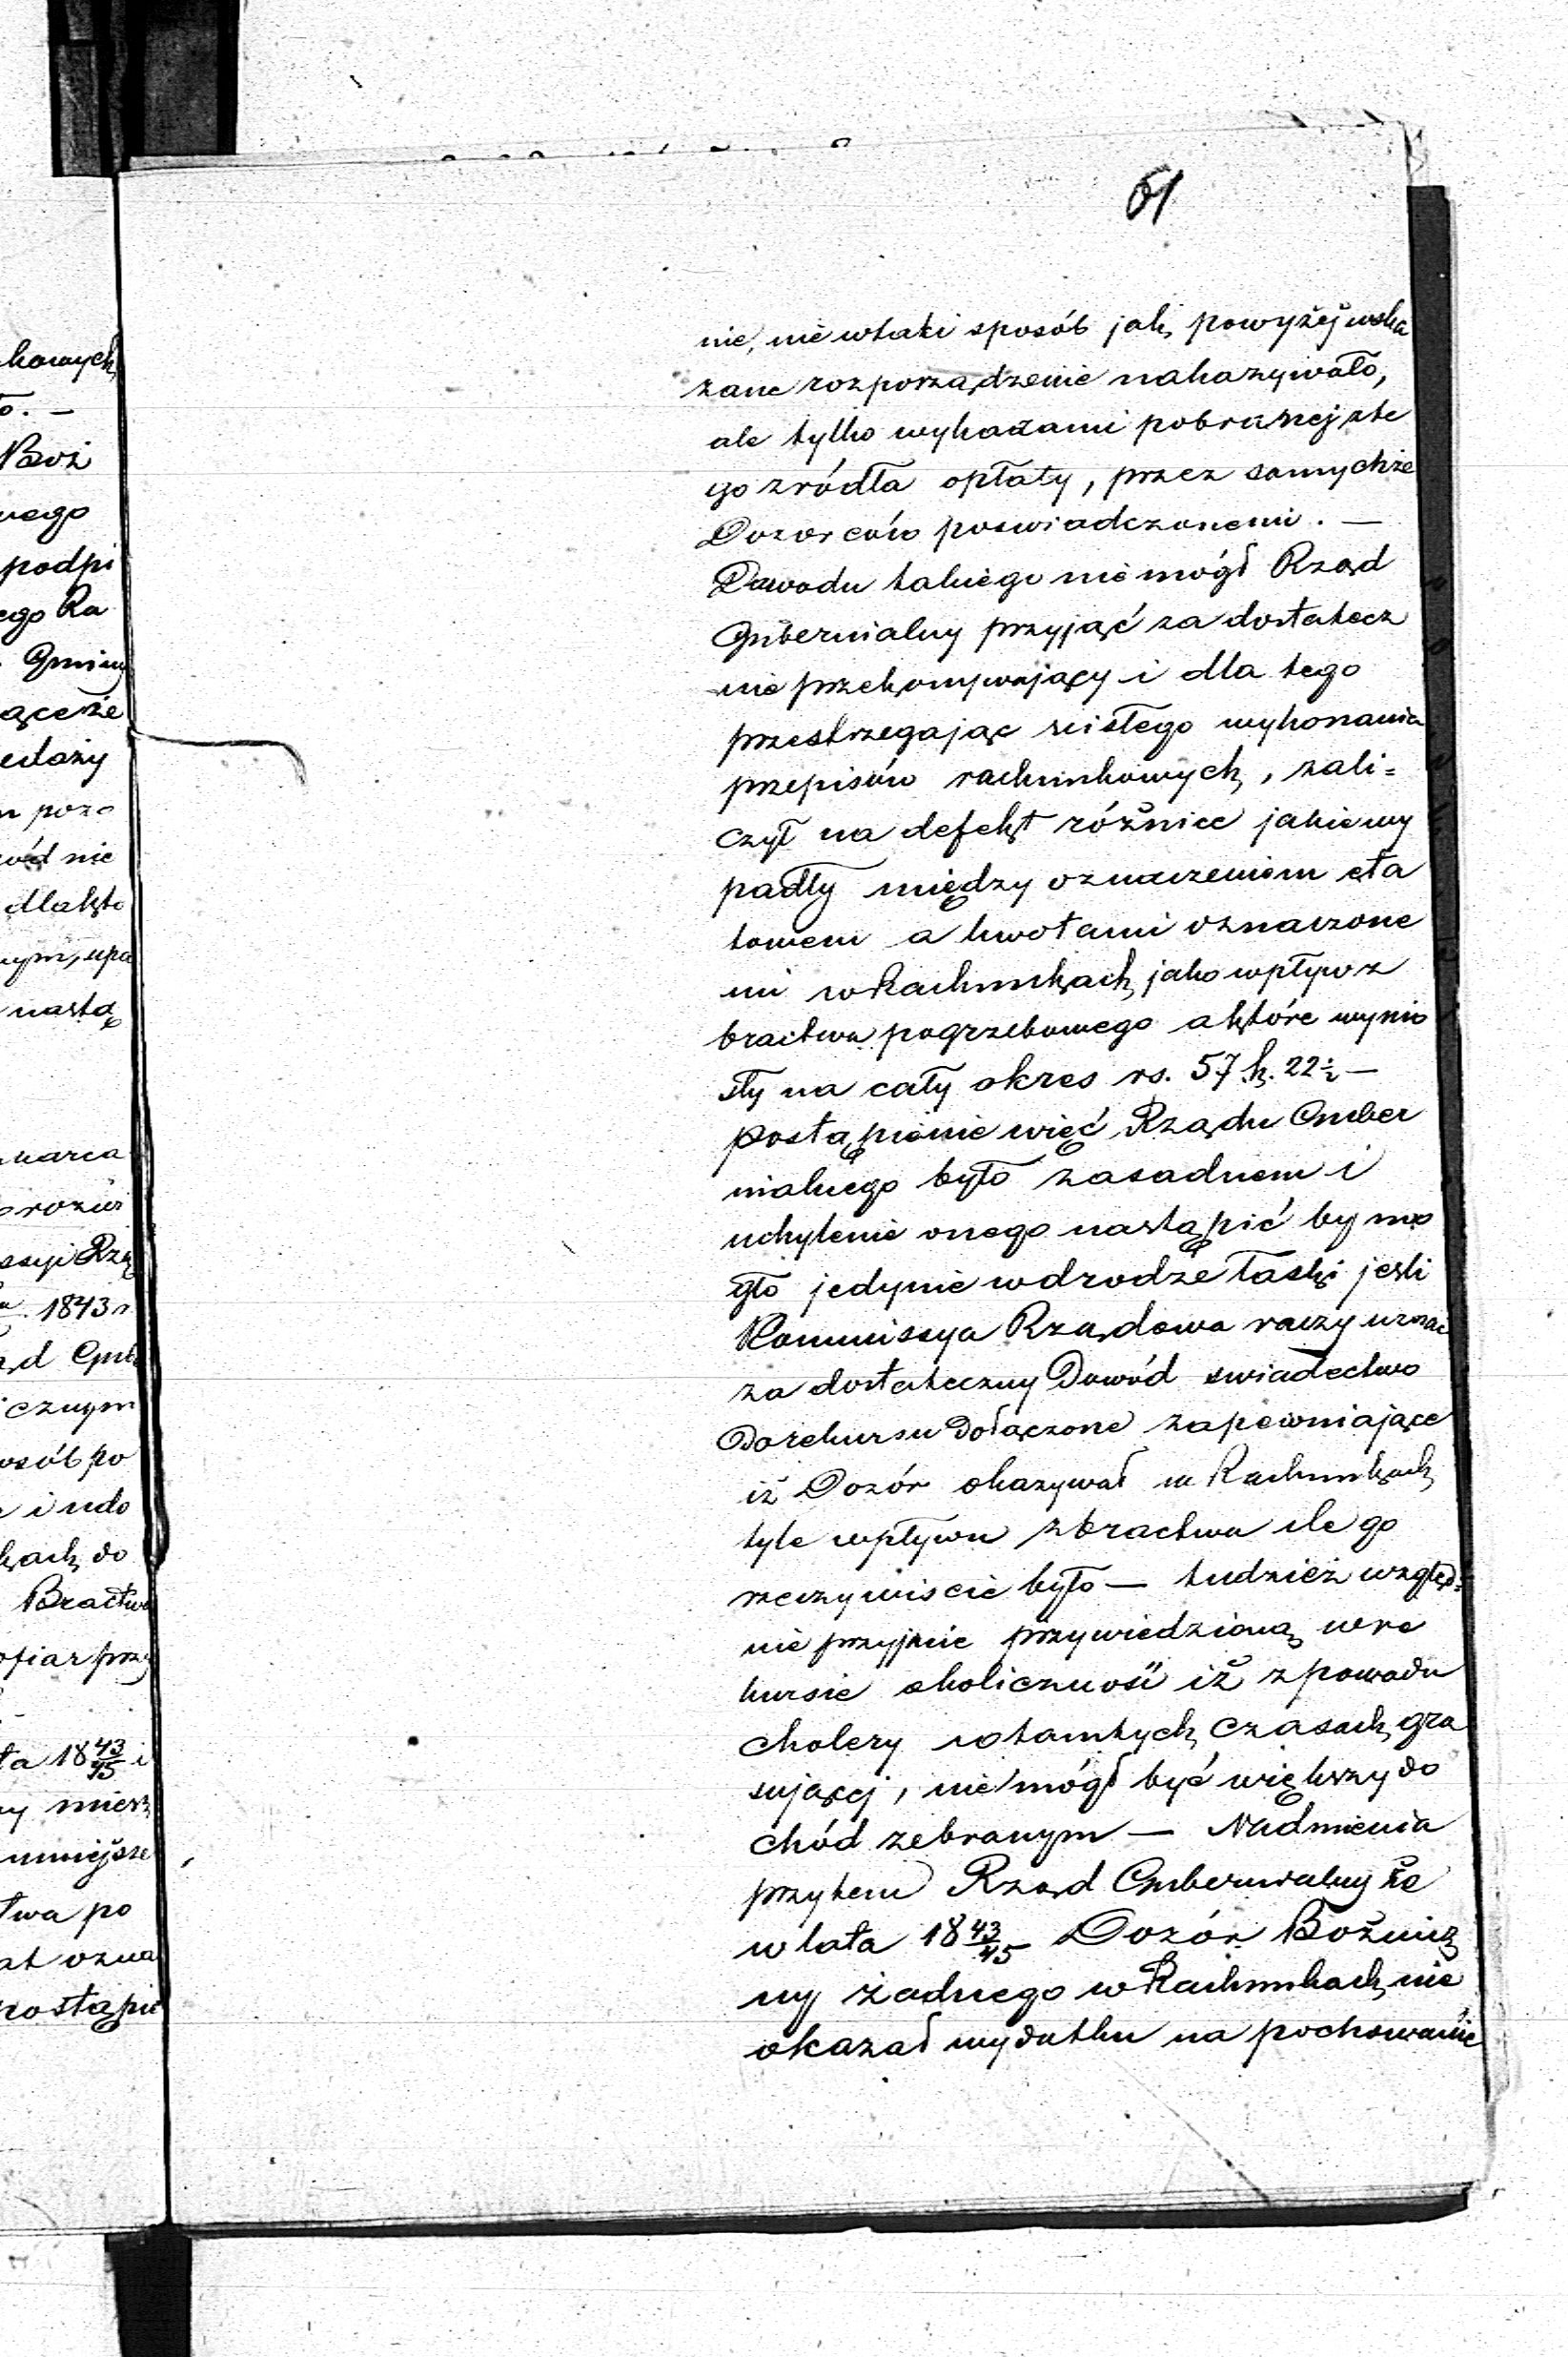 61
nie, nie wtaki sposób jak powyżej wska
zane rozporządzenie nakazywało,
ale tylko wykazami pobranej zte
go zródła opłaty, przez samychże
Dozorców poswiadczonemi. —
Dowodu takiego nie mógł Rząd
Gubernialny przyjąć za dostatecz
nie przekonywający i dla tego
przestrzegając scisłego wykonania
przepisów rachunkowych, zali=
czył na defekt różnice jakie wy
padły między oznaczeniem eta
towem a kwotami oznaczone
mi w Rachunkach jako wpływ z
bractwa pogrzebowego a które wynio
sły na cały okres rs. 57 k. 22½ —
postąpienie więć Rządu Guber
nialnego było zasadnem i
uchylenie onego nastąpić by mo
gło jedynie wdrodze łaski jesli
Kommissya Rządowa raczy uznać
za dostateczny Dowód swiadectwo
Dorekursu Dołączone zapewniające
iż Dozór okazywał w Rachunkach
tyle wpływu zbractwa ile go
rzeczywiscie było — tudzież względ=
nie przyjmie przywiedzioną wre
kursie okoliczność iż zpowodu
cholery wtamtych czasach gra
sującej, nie mógł być większy do
chód zebranym — Nadmienia
przytem Rząd Gubernialny że
w lata 18 43/45 Dozór Bożnicz
ny żadnego w Rachunkach nie
okazał wydatku na pochowanie
kowych
Boż
nego
podpi
ego Ra
Gminy
ącerze
edaży
m pozo
wód nie
dlakto
nym, upa
nastą
marca
rozwi
ssyi Rzą
1843 r
ąd Gub
icznym
osób po
i udo
kach do
Bractwa
ofiar przy
ta 18 43/45 i
ny miesz
umniejsze
twa po
at ozna
postąpie